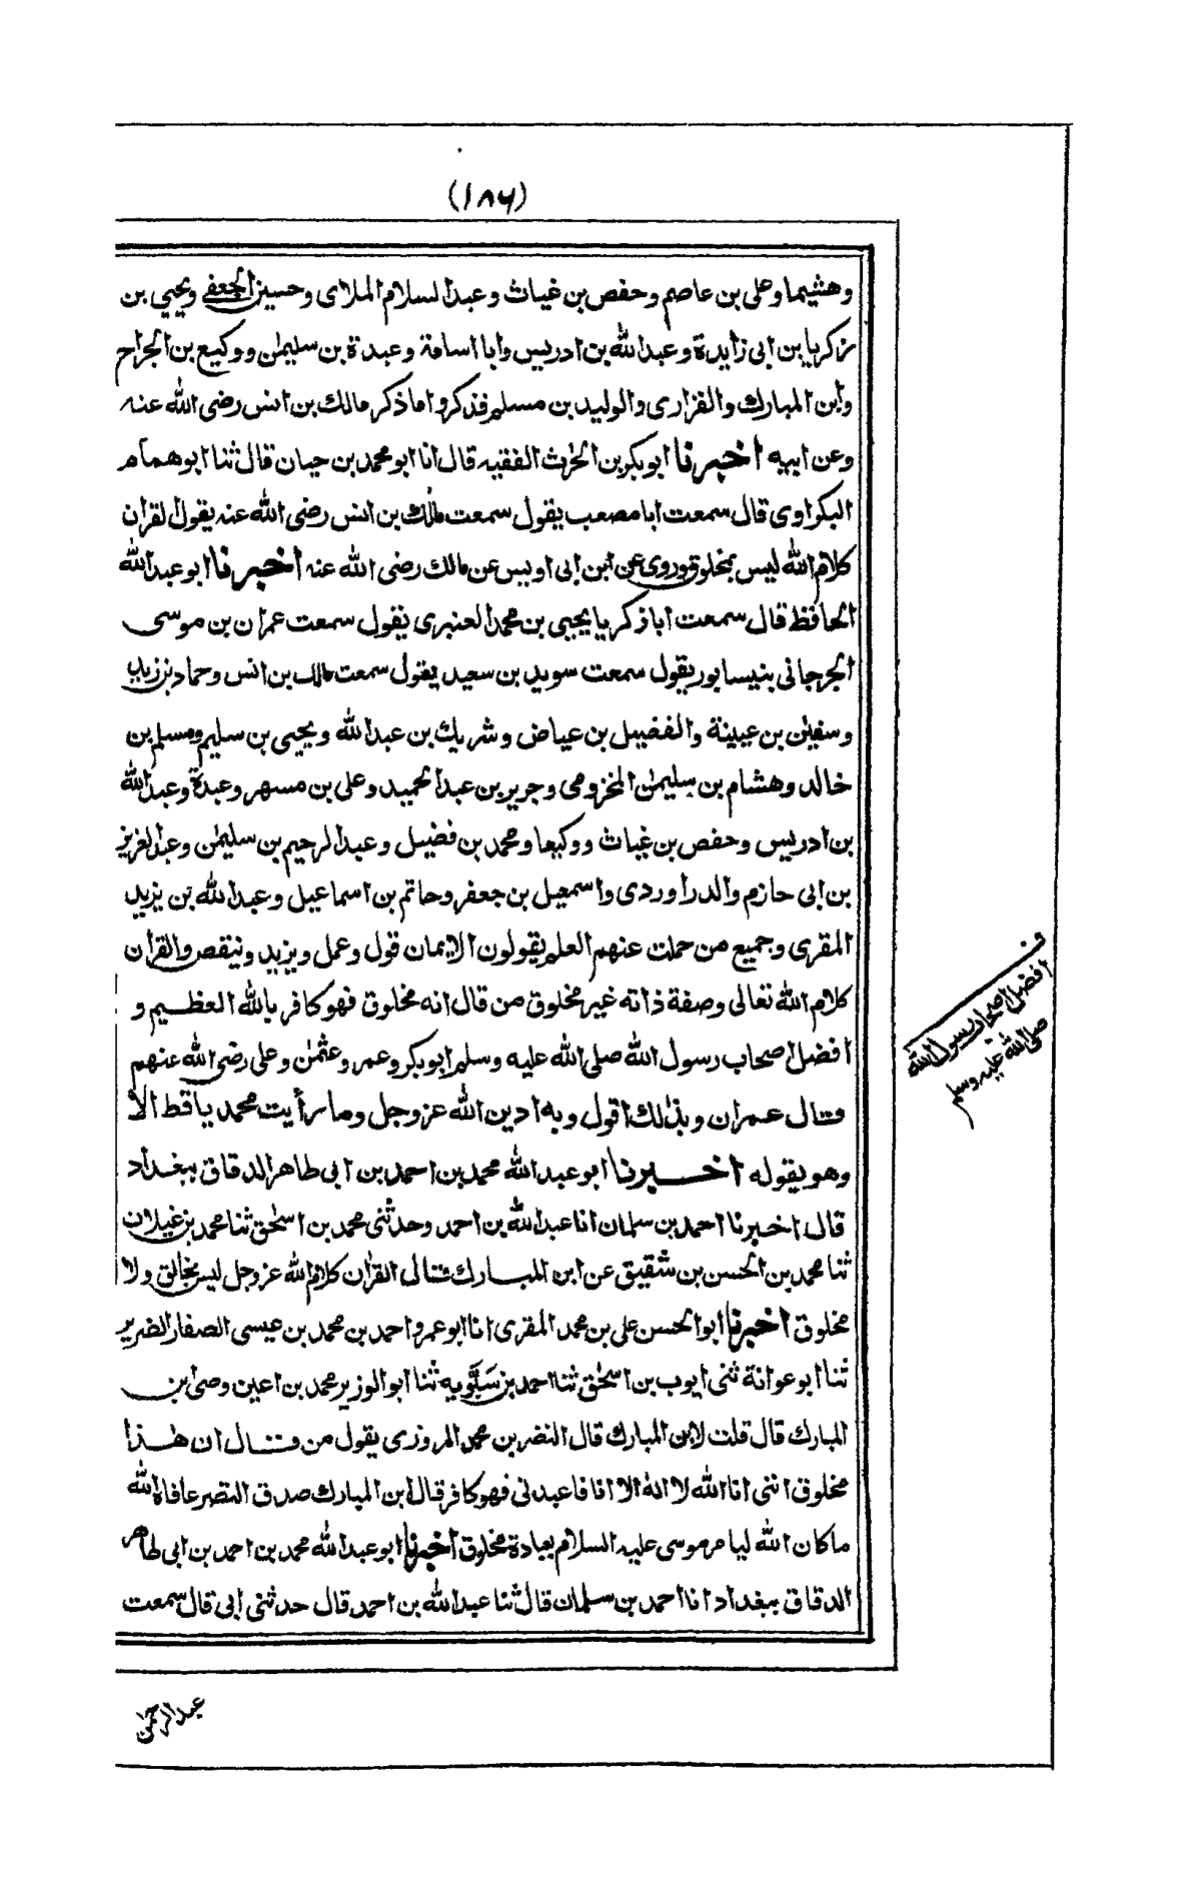 (۱۸۶)
وهشيما وعلى بن عاصم وحفص بن غياث وعبد السلام الملاى وحسين الجعفى ويحيى بن
زكريا بن ابى زايدة وعبد الله بن ادريس وابا اسامة وعبدة بن سليمٰن ووكيع بن الجراح
وابن المبارك والفزارى والوليد بن مسلم فذكروا ماذكر مالك بن انس رضى الله عنه
وعن ابيه اخبرنا ابو بكر بن الحٰرث الفقيه قال انا ابو محمد بن حيان قال ثنا ابو همام
البكراوى قال سمعت ابا مصعب يقول سمعت مٰلك بن انس رضى الله عنه يقول القران
كلام الله ليس بمخلوق وروى عن ابن ابى اويس عن مالك رضى الله عنه اخبرنا ابو عبد الله
الحافظ قال سمعت اباذكريا يحيى بن محمد العنبرى يقول سمعت عمران بن موسى
الجرجانى بنيسابور يقول سمعت سويد بن سعيد يقول سمعت مالك بن انس وحماد بن زيد
وسفيٰن بن عيينة والفضيل بن عياض وشريك بن عبد الله ويحيى بن سليم ومسلم بن
خالد وهشام بن سليمٰن المخزومى وجرير بن عبد الحميد وعلى بن مسهر وعبدة وعبد الله
بن ادريس وحفص بن غياث ووكيعا ومحمد بن فضيل وعبد الرحيم بن سليمٰن وعبد العزيز
بن ابى حازم والدراوردى واسمعيل بن جعفر وحاتم بن اسماعيل وعبد الله بن يزيد
المقرى وجميع من حملت عنهم العلم يقولون الايمان قول وعمل ويزيد وينقص والقران
كلام الله تعالى وصفة ذاته غير مخلوق من قال انه مخلوق فهو كافر بالله العظيم و
افضل اصحاب رسول الله صلى الله عليه وسلم ابو بكر وعمر وعثمٰن وعلى رضى الله عنهم
قال عمران وبذٰلك اقول وبه ادين الله عز وجل وما رأيت محمد ياقط الا
وهو يقوله اخبرنا ابو عبد الله محمد بن احمد بن ابى طاهر الدقاق ببغداد
قال اخبرنا احمد بن سلمان انا عبد الله بن احمد وحدثنى محمد بن اسحٰق ثنا محمد بن غيلان
ثنا محمد بن الحسن بن شقيق عن ابن المبارك قال القران كلام الله عز وجل ليس بخالق ولا
مخلوق اخبرنا ابو الحسن على بن محمد المقرى انا ابو عمرو احمد بن محمد بن عيسى الصفار الضرير
ثنا ابو عوانة ثنى ايوب بن اسحٰق ثنا احمد بن سَبُّويه ثنا ابو الوزير محمد بن اعين وصى ابن
المبارك قال قلت لابن المبارك قال النضر بن محمد المروزى يقول من قال ان هٰذا
مخلوق اننى انا الله لا اله الا انا فاعبدنى فهو كافر قال ابن المبارك صدق النضر عافاه الله
ماكان الله ليامر موسى عليه السلام بعبادة مخلوق اخبرنا ابو عبد الله محمد بن احمد بن ابى طاهر
الدقاق ببغداد انا احمد بن سلمان قال ثنا عبد الله بن احمد قال حدثنى ابى قال سمعت
فـ
افضل اصحاب رسول الله
صلى الله عليه وسلم
عبد الرحمٰن